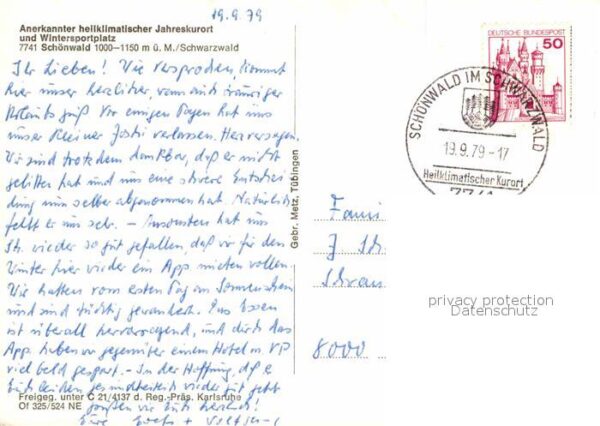 19.9.79
Anerkannter heilklimatischer Jahreskurort
und Wintersportplatz
7741 Schönwald 1000–1150 m ü. M./Schwarzwald
Ihr Lieben! Wie versprochen, kommt
hier unser herzlicher, wenn auch trauriger
Urlaubsgruß. Vor einigen Tagen hat uns
unser kleiner Josti verlassen. Herzversagen.
Wir sind trotzdem dankbar, daß er nicht
gelitten hat und uns eine schwere Entschei-
dung nun selber abgenommen hat. Natürlich
fehlt er uns sehr. – Ansonsten hat uns
Sch. wieder so gut gefallen, daß wir für den
Winter hier wieder ein App mieten wollen.
Wir hatten vom ersten Tag an Sonnenschein
und sind tüchtig gewandert. Das Essen
ist überall hervorragend, und durch das
App. haben wir gegenüber einem Hotel m. VP
viel Geld gespart. – In der Hoffnung, daß es
Euch beiden gesundheitlich wieder gut geht
grüßen wir Euch herzlich!
Eure
Freigeg. unter C 21/4137 d. Reg.-Präs. Karlsruhe
Of 325/524 NE
Gebr. Metz, Tübingen
DEUTSCHE BUNDESPOST
50
SCHÖNWALD IM SCHWARZWALD
19.9.79-17
Heilklimatischer Kurort
7741
Fami
J Sch
Strau
8000
privacy protection
Datenschutz